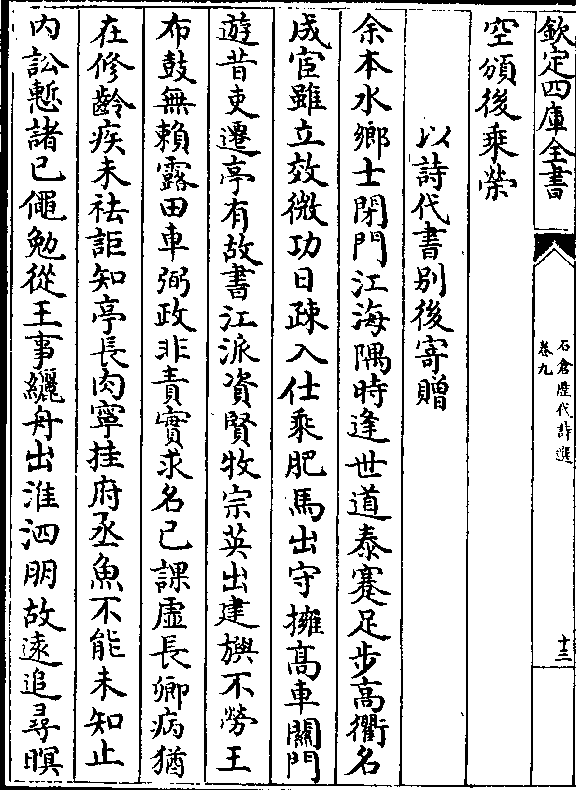 欽定四庫全書
石倉歴代詩選
卷九
十三
空頒後乗榮
以詩代書别後寄贈
余本水鄉士閉門江海隅時逢世道泰蹇足步高衢名
成宦雖立效微功日疎入仕乘肥馬出守擁高車關門
遊昔吏遷亭有故書江派資賢牧宗英出建旟不勞王
布鼓無賴露田車弼政非責實求名已課虚長卿病猶
在修齡疾未祛詎知亭長肉寧挂府丞魚不能未知止
内訟慙諸已僶勉從王事纚舟出淮泗朋故遠追尋暝